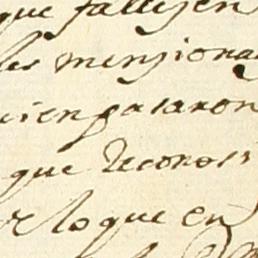 que fallesen
les mensiona
cien pasaron
que Reconos
lo que en